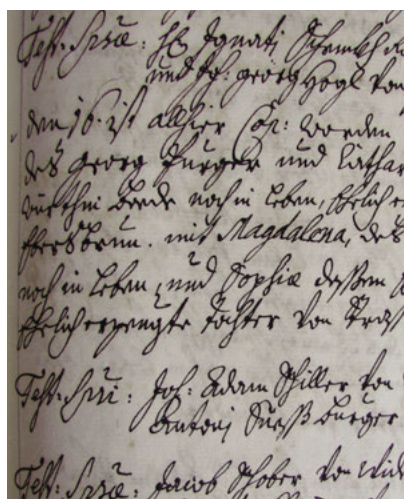 Test: Spsæ: H: Ignati Schmelh
und Joh: georg Hogl von
den 16. ist allhier Cop: worden
des georg purger und Cathar
beede noch in leben, Ehelich
Ebersbrun. mit Magdalena, des
noch in leben, und Sophiæ dessen
Ehelich erzeugte tochter von Strass
Test: Spsi: Joh: Adam Schiller von
Antoni Suess burger
Test: Spsæ: Jacob Schober von